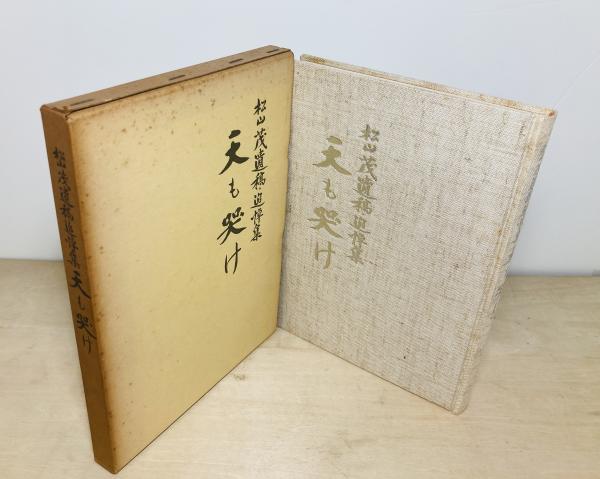 松山茂遺稿追悼集 天も哭け
松山茂遺稿・追悼集
天も哭け
松山茂遺稿・追悼集
天も哭け